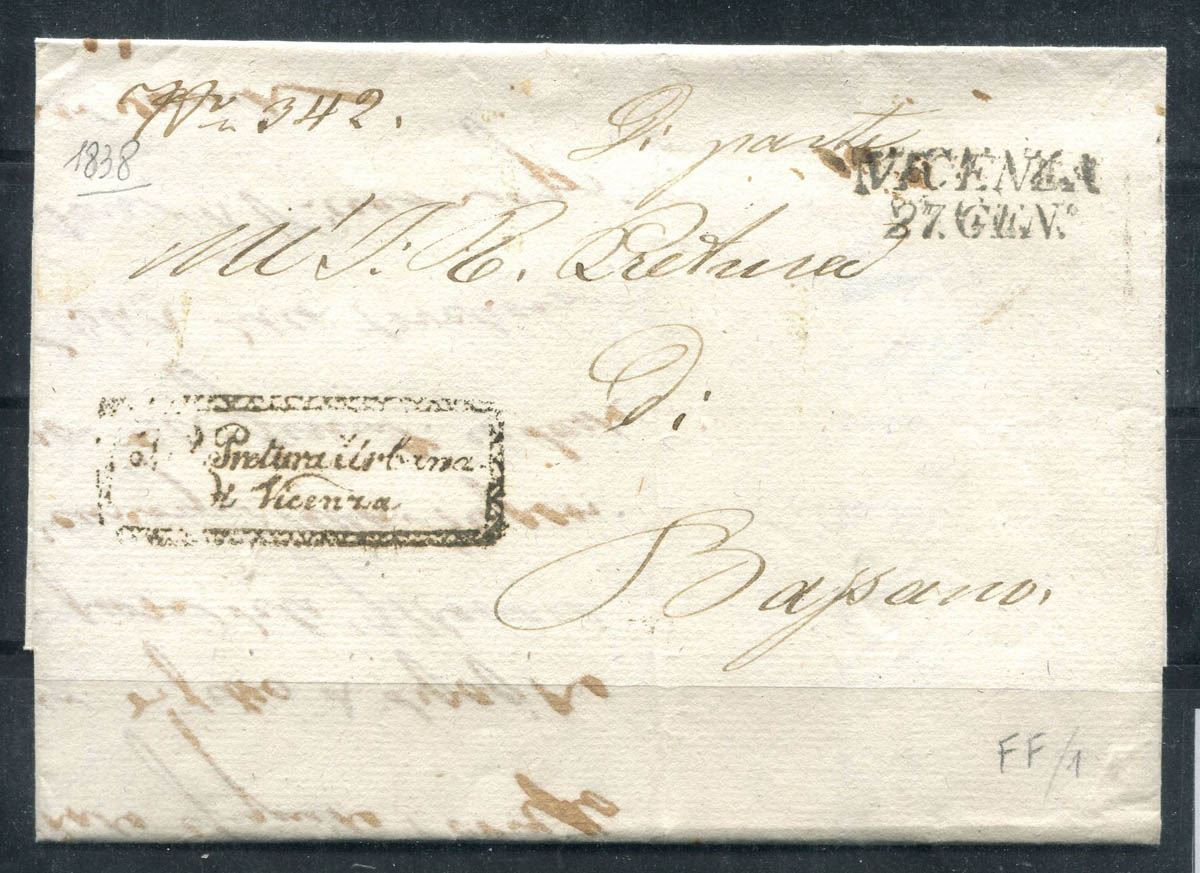 Nr. 342.
1838
Di parte
VICENZA
27. GEN.º
All' I. R. Pretura
Di
Bassano.
Pretura Urbana
di Vicenza
FF/1